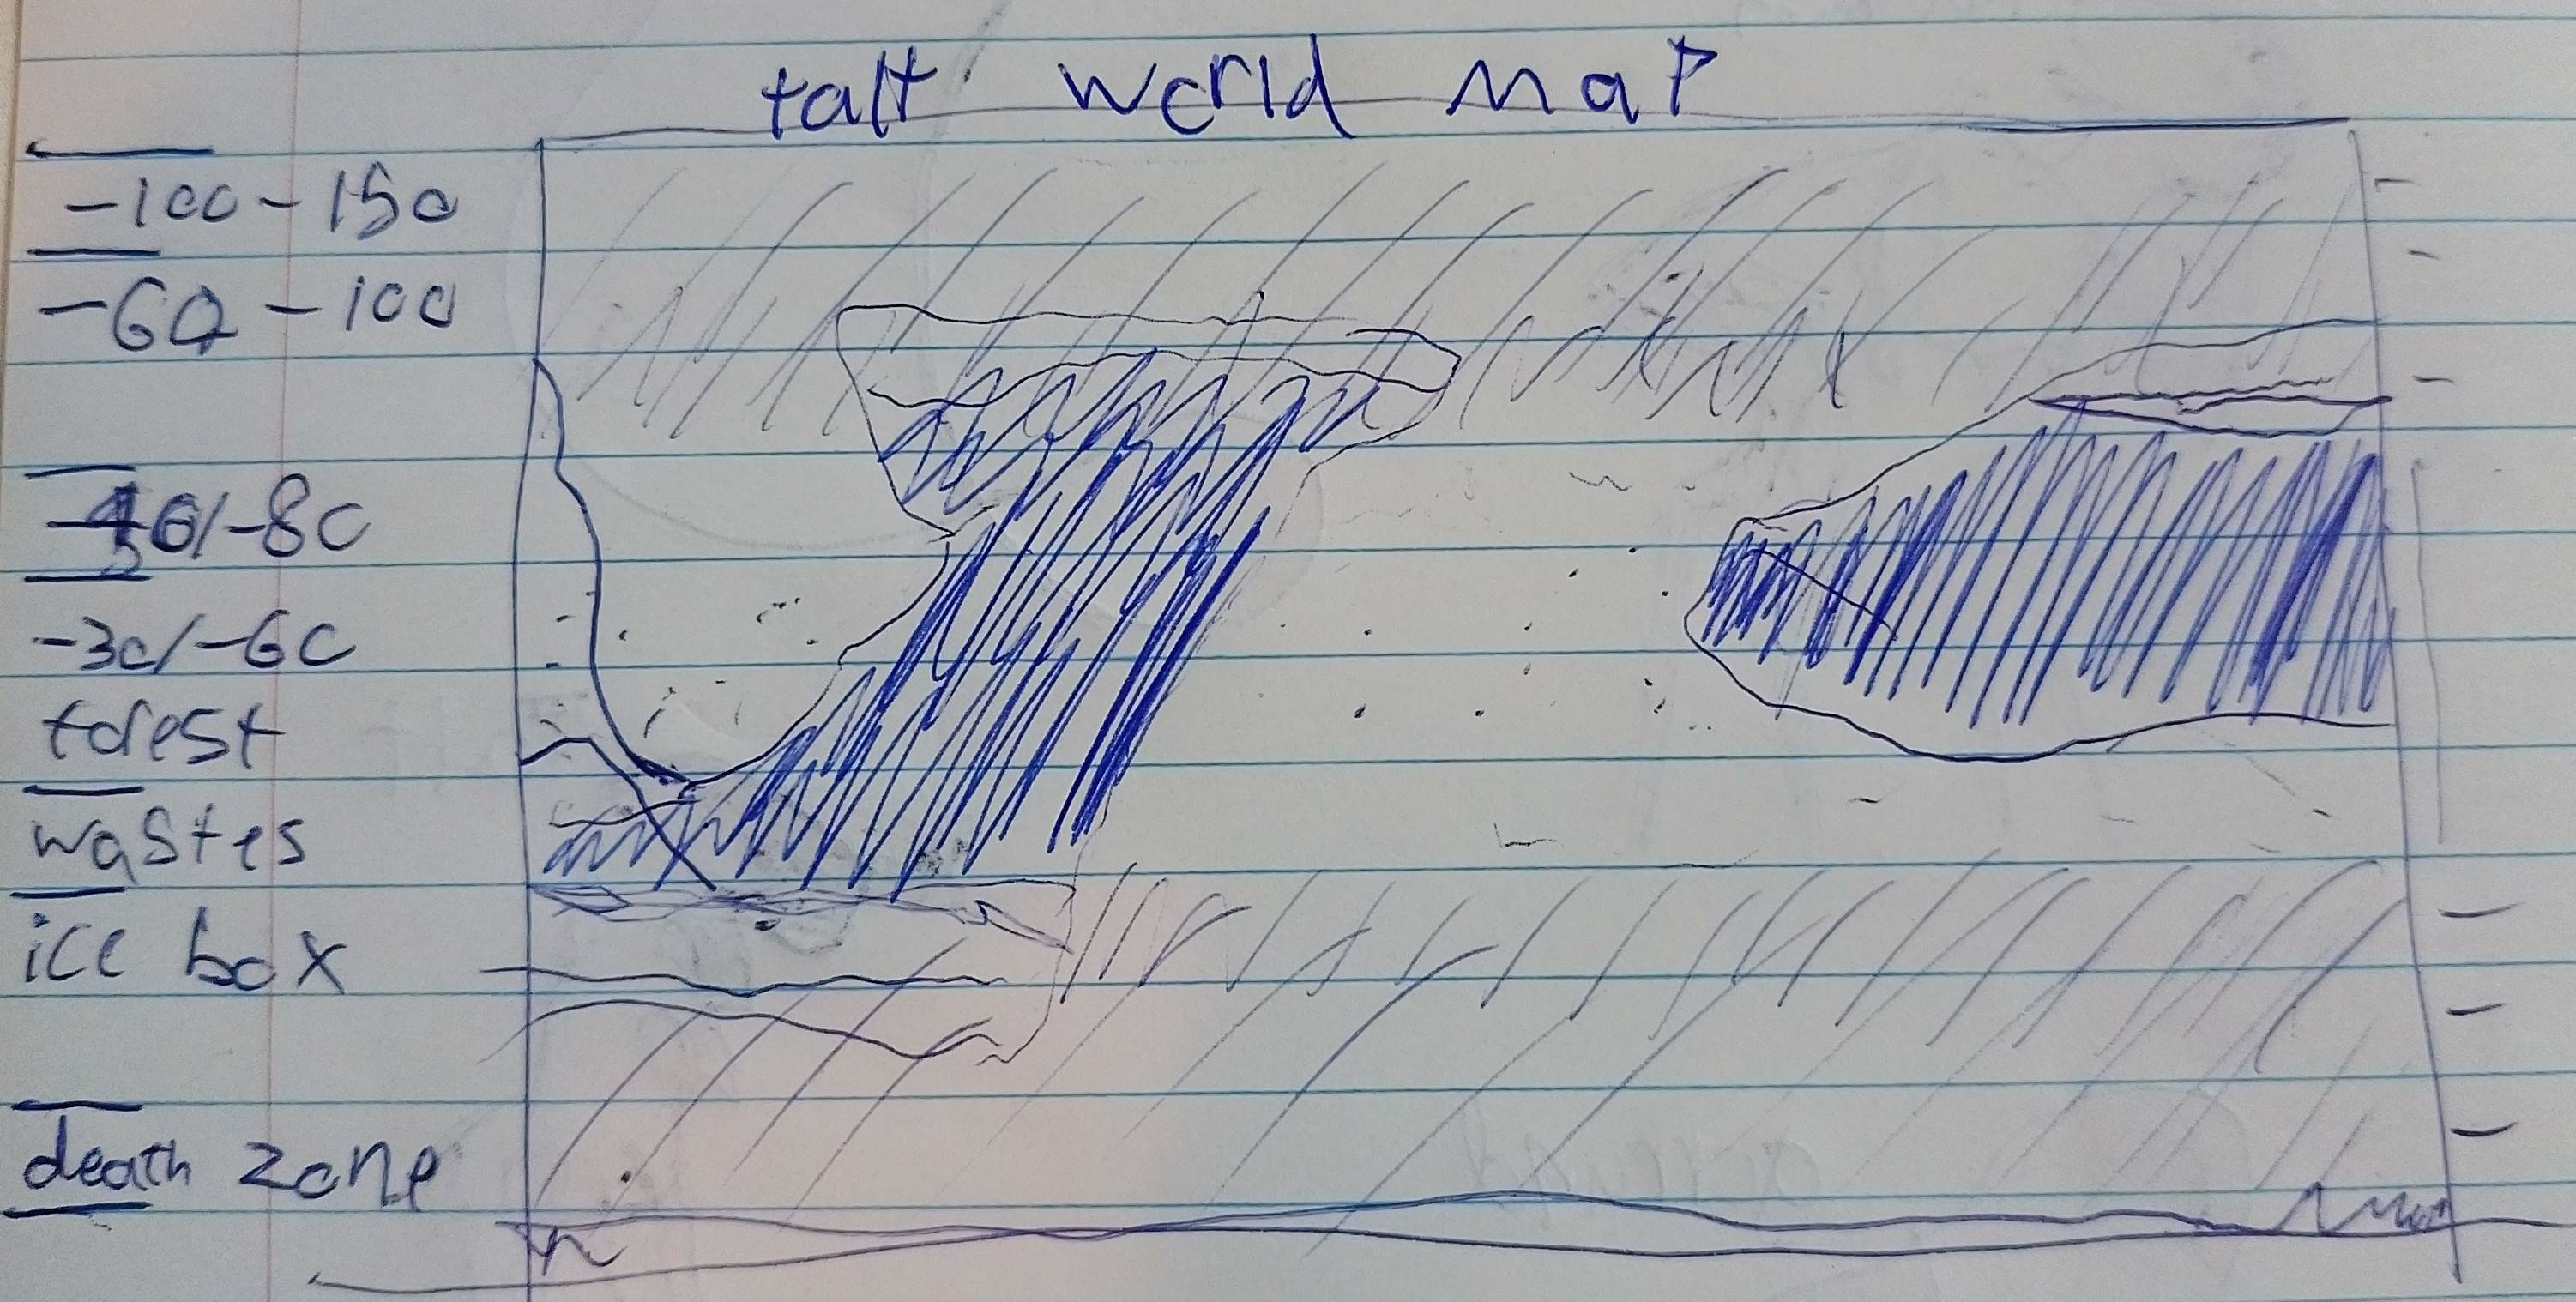 talt world map
-100-150
-60-100
/-80
-30/-60
forest
wastes
ice box
death zone